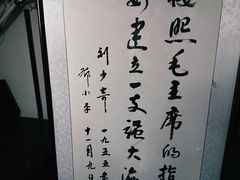 按照毛主席的指
建立一支强大海
刘少奇 一九五五
邓小平 十一月九日